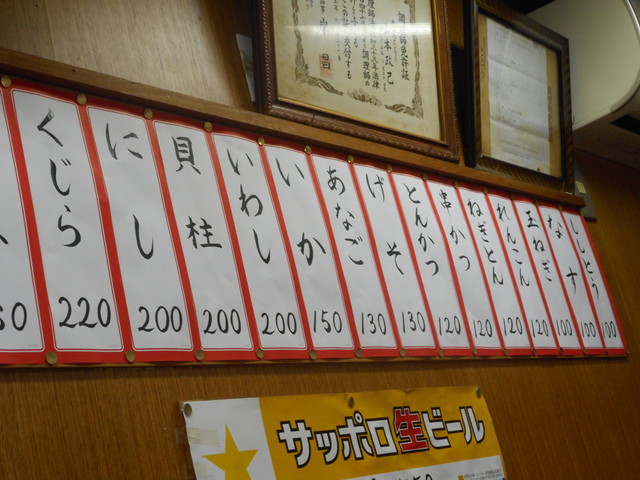 調理師免許証
くじら 220
にし 200
貝柱 200
いわし 200
いか 150
あなご 130
げそ 130
とんかつ 120
串かつ 120
ねぎとん 120
れんこん 120
玉ねぎ 100
なす 100
ししとう 100
サッポロ生ビール